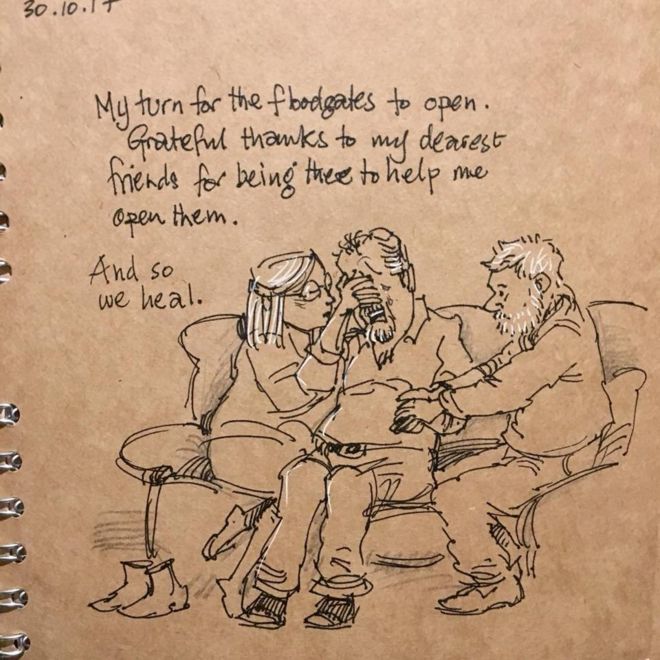 30.10.17
My turn for the floodgates to open.
Grateful thanks to my dearest
friends for being there to help me
open them.
And so
we heal.